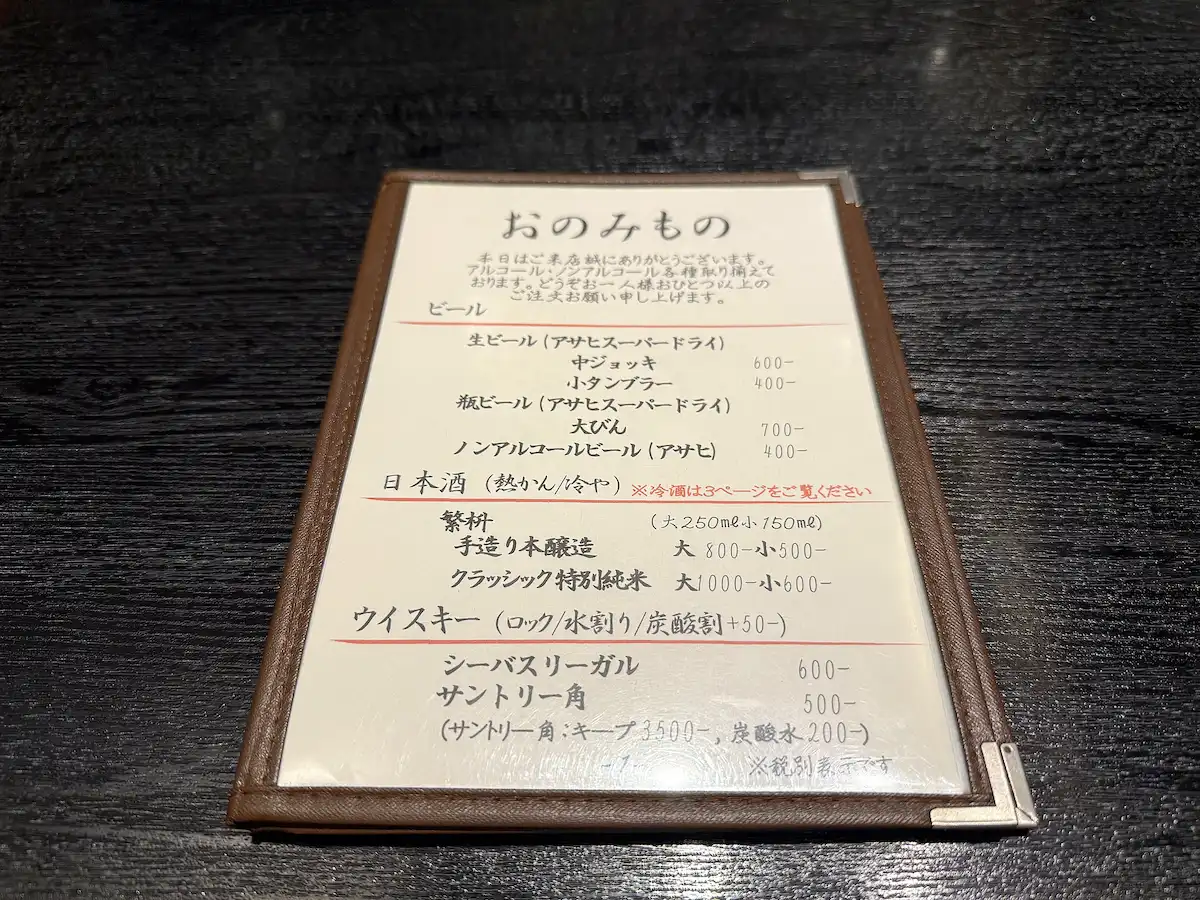 おのみもの
本日はご来店誠にありがとうございます。
アルコール・ノンアルコール各種取り揃えて
おります。どうぞお一人様おひとつ以上の
ご注文お願い申し上げます。
ビール
生ビール(アサヒスーパードライ)
中ジョッキ 600-
小タンブラー 400-
瓶ビール(アサヒスーパードライ)
大びん 700-
ノンアルコールビール(アサヒ) 400-
日本酒(熱かん/冷や)※冷酒は3ページをご覧ください
繁枡 (大250㎖小150㎖)
手造り本醸造 大 800-小500-
クラッシック特別純米 大1000-小600-
ウイスキー(ロック/水割り/炭酸割+50-)
シーバスリーガル 600-
サントリー角 500-
(サントリー角:キープ3500-, 炭酸水200-)
-1-
※税別表示です